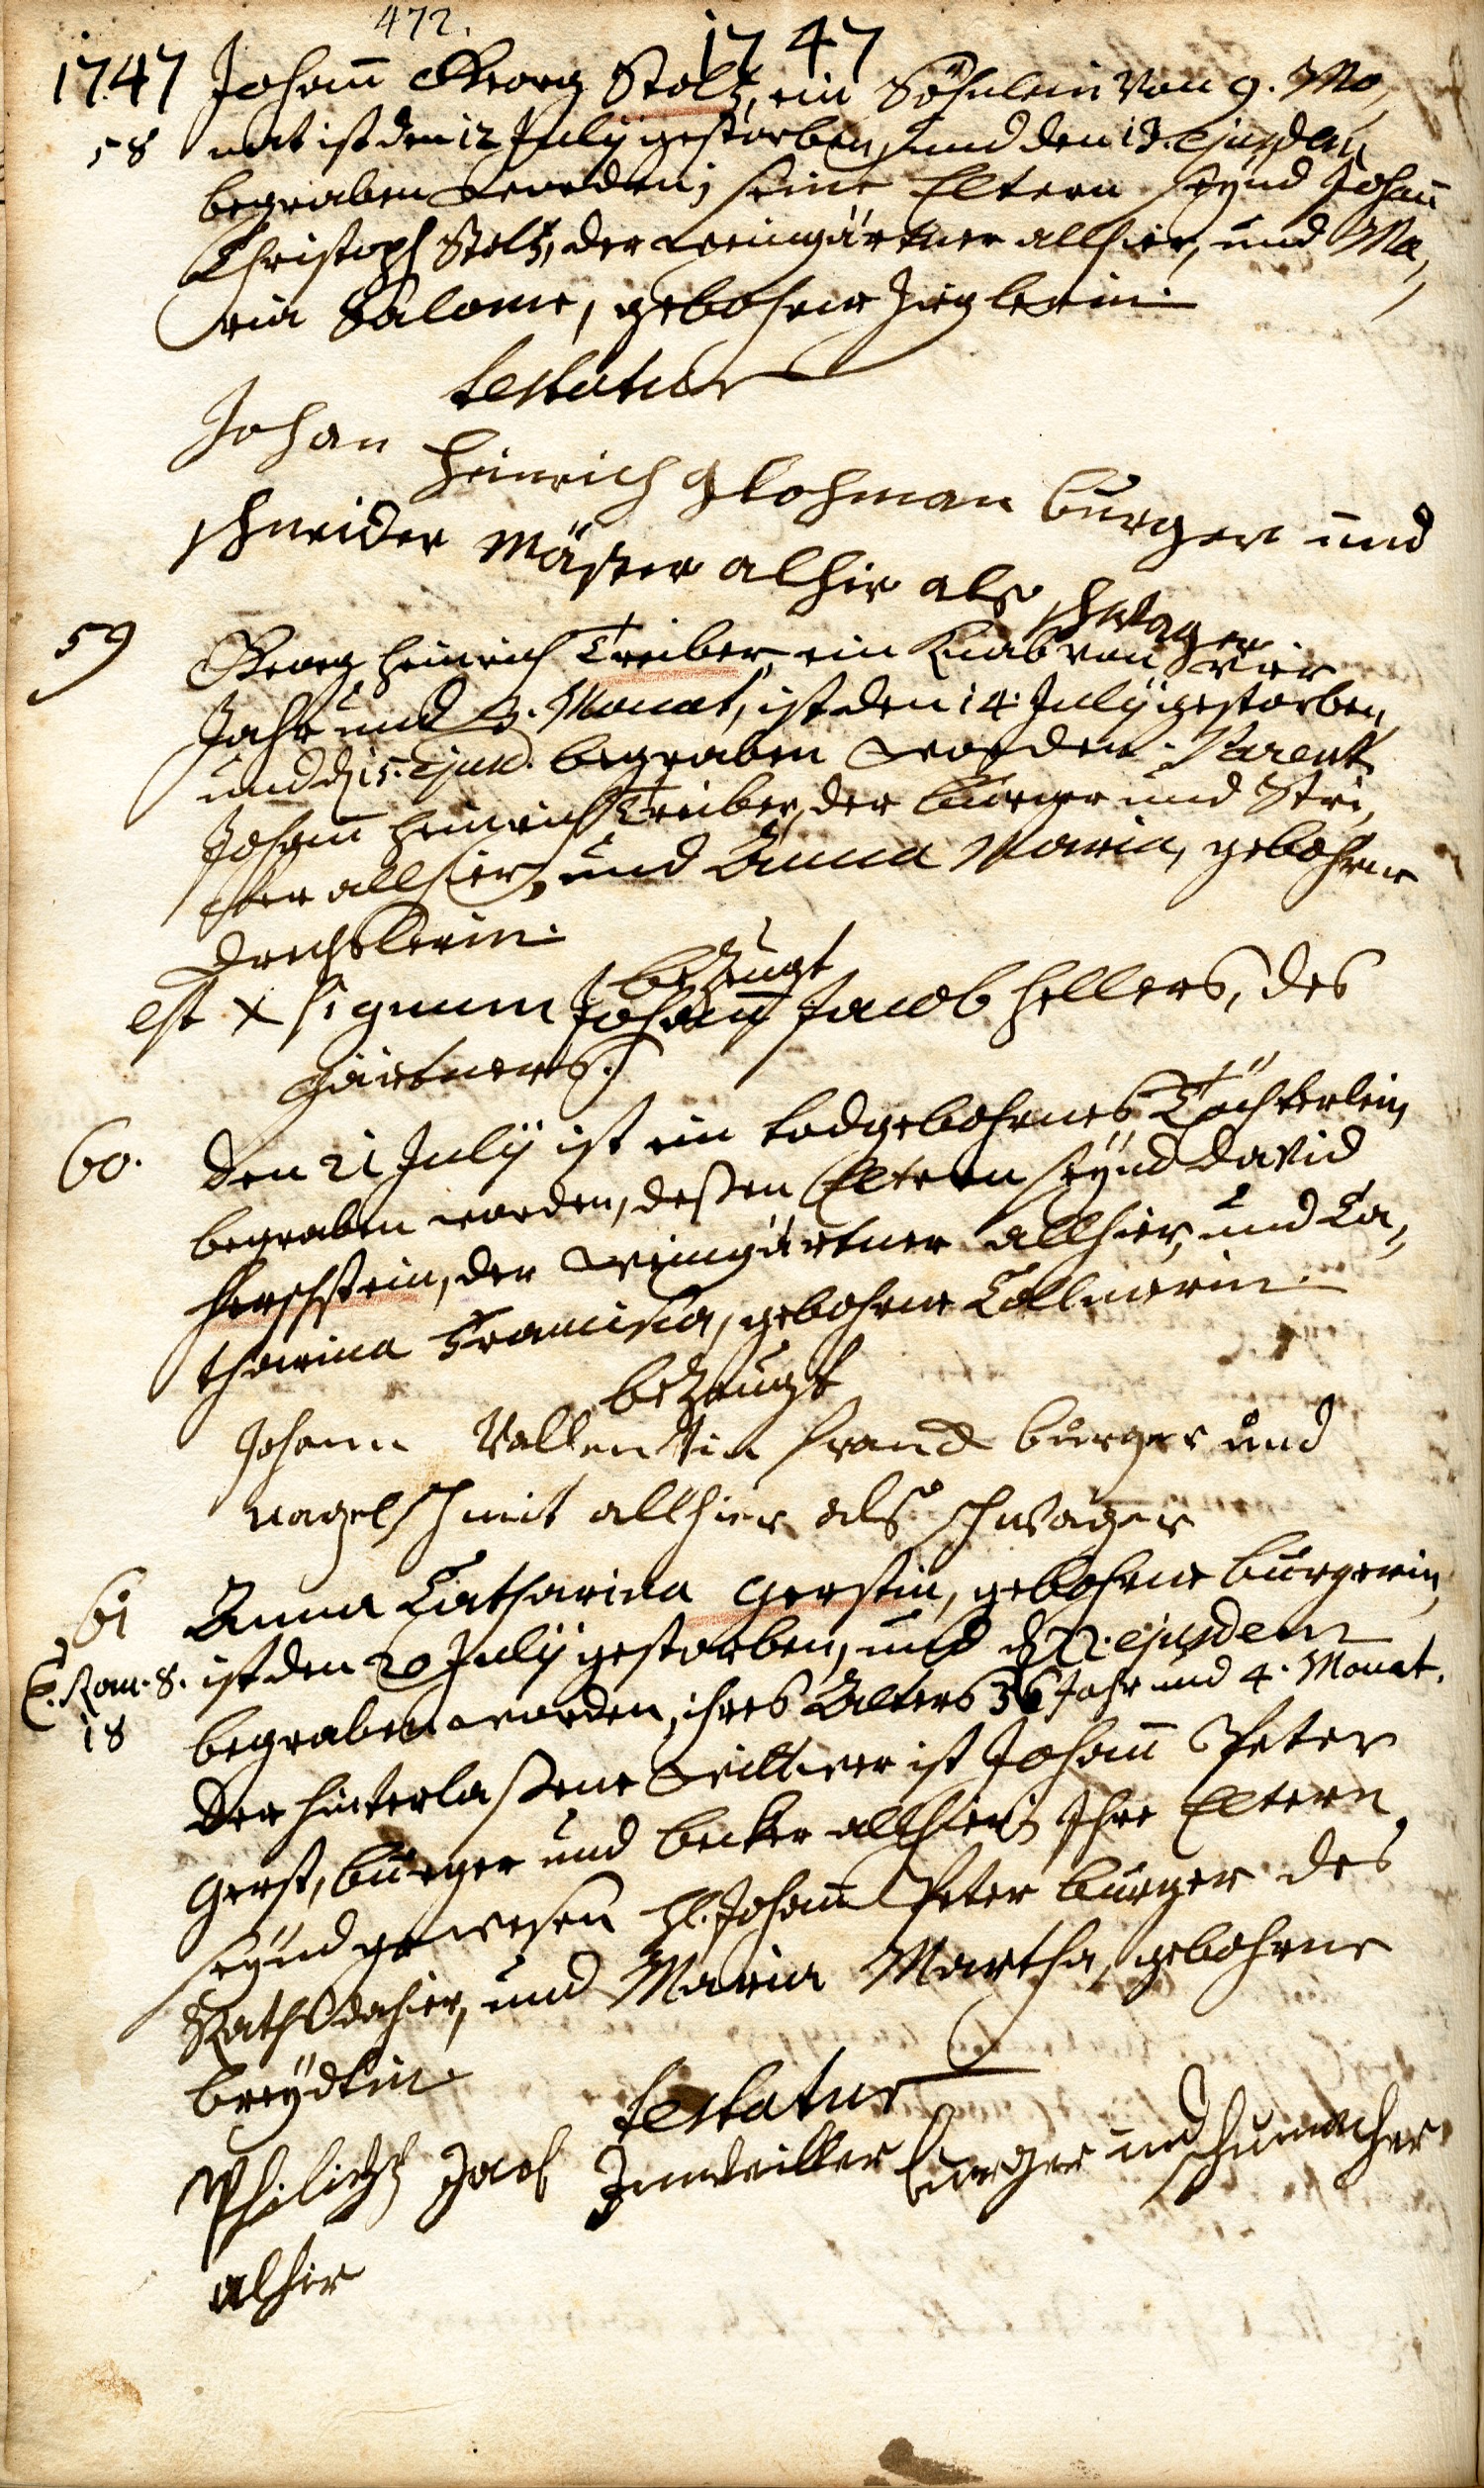 472.
1747
1747 Johann Georg Stoltz, ein Söhnlein von 9. Mo,
58 nat ist den 12 July gestorben, und den 13. ejusdem
begraben worden; seine Eltern seynd Johann
Christoph Stoltz, der weingärtner allhier, und Ma,
ria Salome, gebohrne Zieglerin.
testatur
Johan Heinrich Glohman burger und
schneider Mäster alhir als schwager
59 Georg Heinrich Treiber, ein Knab von vier
Jahr und 3. Monat, ist den 14. July gestorben,
und d. 15. Ejusd. begraben worden. Parent.
Johann Heinrich Treiber, der burger und Stri,
cker allhier, und Anna Maria, gebohrne
Drechslerin.
bezeugt
est x signum Johann Jacob Hellers, des
gärtners.
60. den 21 July ist ein todgebohrnes Töchterlein
begraben worden, deßen Eltern seynd David
Herschstein, der weingärtner allhier, und Ca,
tharina Francisca, gebohrne Collmerin.
bezeugt
Johann Vallentin Brand burger und
nagelschmit allhier als schwager
61 Anna Catharina Gerstin, gebohrne burgerin,
E. Rom. 8. ist den 20 July gestorben, und d. 22. ejusdem
18 begraben worden, ihres Alters 36 Jahr und 4. Monat.
der hinterlaßene wittwer ist Johann Peter
Gerst, burger und becker allhier; Ihre Eltern
seynd gewesen H. Johann Peter burger des
Raths dahier, und Maria Martha, gebohrne
breydtin.
testatur
Philipp Jacob burger und schumacher
alhir